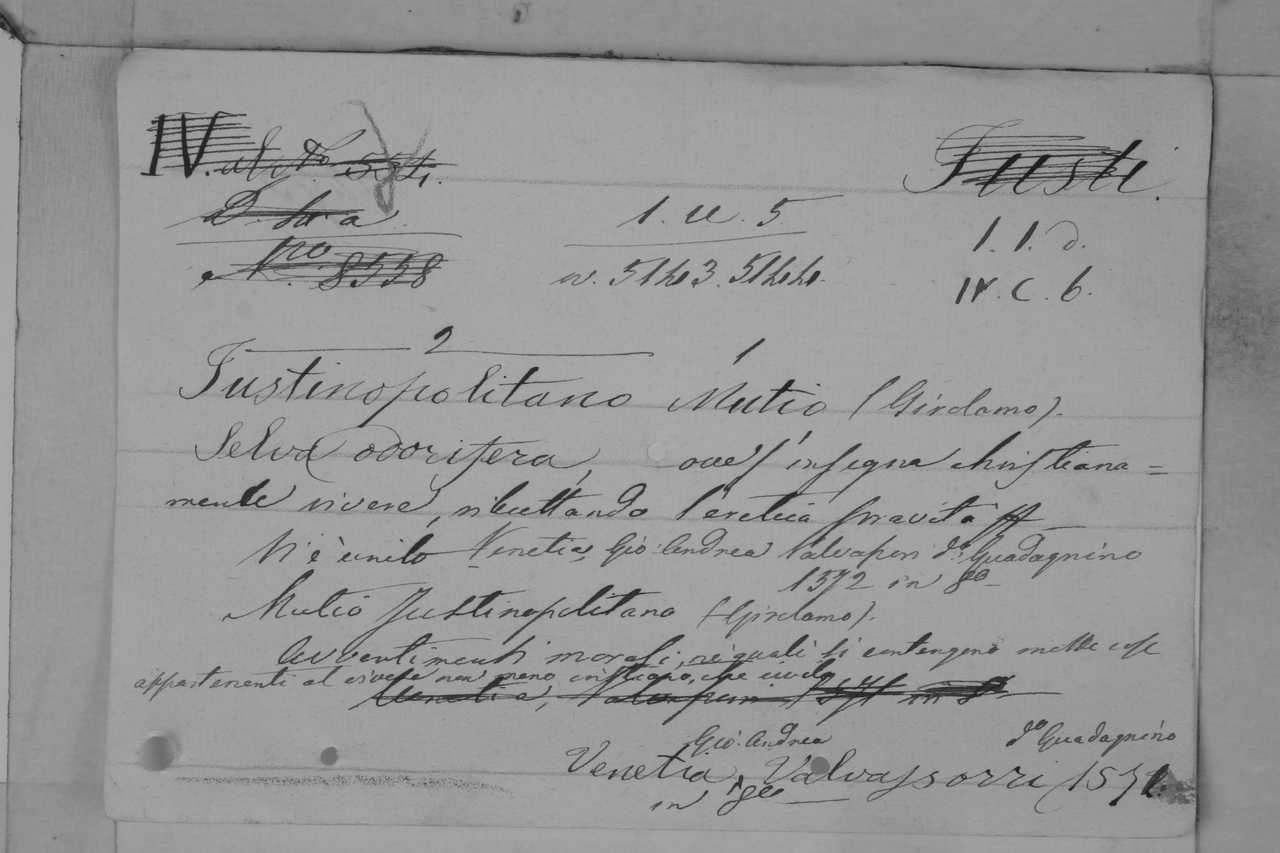 IV.
Iusti.
D.
1. u. 5
1. 1. d.
No. 8558
n. 5143. 5144.
IV. C. 6.
2 1
Iustinopolitano Mutio (Girolamo).
Selva odorifera, ove s'insegna christiana=
mente vivere, ributtando l'eretica pravità
V'è unito Venetia, Gio: Andrea Valvassori do. Guadagnino
1572 in 8o
Mutio Justinopolitano (Girolamo).
Avvertimenti morali, ne' quali si contengono molte cose
appartenenti al vivere non meno cristiano, che civile
Venetia, Valvassori 1571 in 8o
Gio: Andrea do Guadagnino
Venetia, Valvassorri 1571.
in 8o